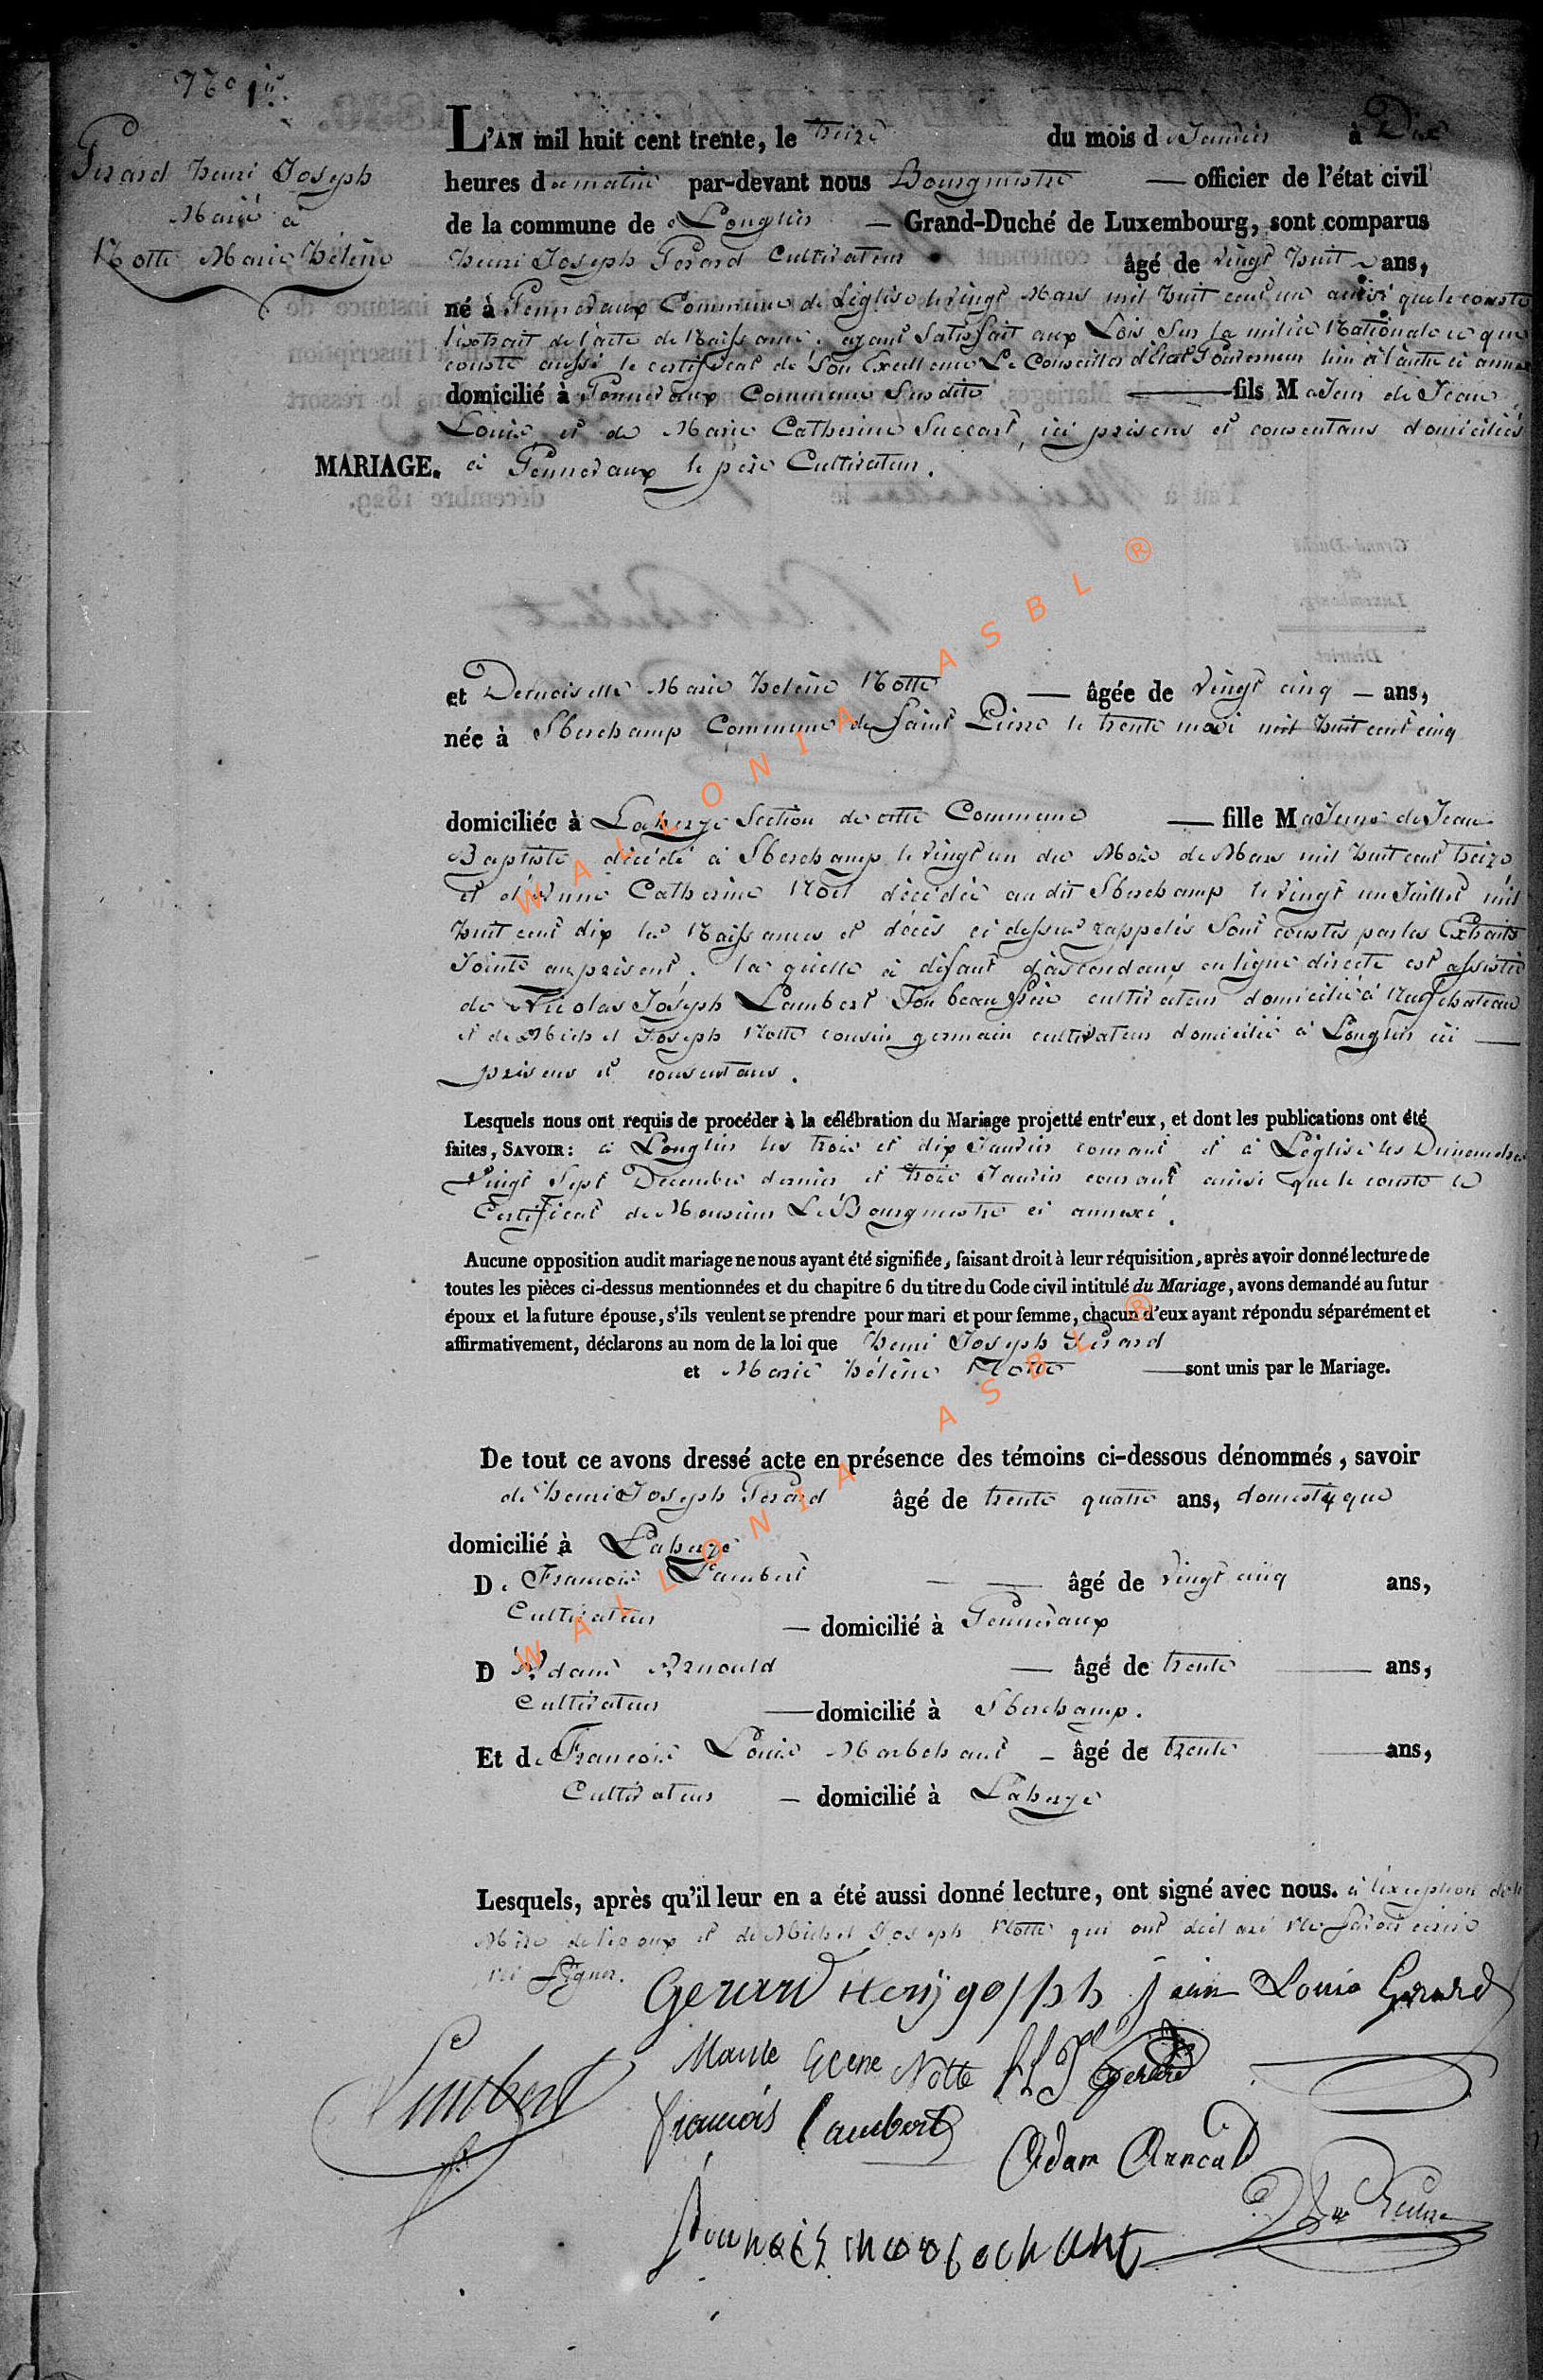 N° 1er.
Gerard henri Joseph
Marié à
Notte Marie hélène
L'AN mil huit cent trente, le treize du mois de Janvier à Dix
heures du matin par-devant nous Bourgmestre — officier de l'état civil
de la commune de Longlier — Grand-Duché de Luxembourg, sont comparus
henri Joseph Gerard Cultivateur âgé de vingt huit ans,
né à Gennevaux Commune de Léglise le vingt Mars mil huit cent un ainsi que le conste
l'extrait de l'acte de Naissance. ayant Satisfait aux Lois Sur la milice Nationale ce que
conste aussi le certificat de Son Excellence Le Conseiller d'état Gouverneur ci annexé
domicilié à Gennevaux Commune Susdite — fils Majeur de Jean
Louis et de Marie Catherine Succart, ici présens et consentans domiciliés
MARIAGE. à Gennevaux le père Cultivateur.
et Demoiselle Marie helène Notte — âgée de vingt cinq — ans,
née à Sberchamp Commune de Saint Pierre le trente mai mil huit cent cinq
domiciliée à Laherye Section de cette Commune — fille Majeure de Jean
Baptiste décédé à Sberchamp le vingt un du Mois de Mars mil huit cent treize
et d'Anne Catherine Noël décédée au dit Sberchamp le vingt un Juillet mil
huit cent dix les Naissances et décès ci dessus rappelés Sont constés par les Extraits
Joints au présent. la quelle à défaut d'ascendans en ligne directe est assistée
de Nicolas Joseph Lambert Son beau frère cultivateur domicilié à Neufchateau
et de Michel Joseph Notte cousin germain cultivateur domicilié à Longlier ici —
présens et consentans.
Lesquels nous ont requis de procéder à la célébration du Mariage projetté entr'eux, et dont les publications ont été
faites, SAVOIR: à Longlier les trois et dix Janvier courant et à Léglise les Dimanches
Vingt Sept Decembre dernier et trois Janvier courant ainsi que le conste le
Certificat de Monsieur Le Bourgmestre ci annexé.
Aucune opposition audit mariage ne nous ayant été signifiée, faisant droit à leur réquisition, après avoir donné lecture de
toutes les pièces ci-dessus mentionnées et du chapitre 6 du titre du Code civil intitulé du Mariage, avons demandé au futur
époux et la future épouse, s'ils veulent se prendre pour mari et pour femme, chacun d'eux ayant répondu séparément et
affirmativement, déclarons au nom de la loi que henri Joseph Gerard
et Marie hélène Notte — sont unis par le Mariage.
De tout ce avons dressé acte en présence des témoins ci-dessous dénommés, savoir
de henri Joseph Gerard âgé de trente quatre ans, domestique
domicilié à Laherye
De François Lambert — âgé de vingt cinq ans,
Cultivateur — domicilié à Gennevaux
D'Adam Arnould — âgé de trente — ans,
Cultivateur — domicilié à Sberchamp.
Et de François Louis Marbehant — âgé de trente — ans,
Cultivateur — domicilié à Laherye
Lesquels, après qu'il leur en a été aussi donné lecture, ont signé avec nous. à l'exception de la
Mère de l'epoux et de Michel Joseph Notte qui ont déclaré Ne Savoir écrire
ni Signer.
Gerard Henÿ Joseph Jean Louis Gerard
Lambert Notte Gerard
françois Lambert
Adam Arnould
WALLONIA ASBL ®
WALLONIA ASBL ®